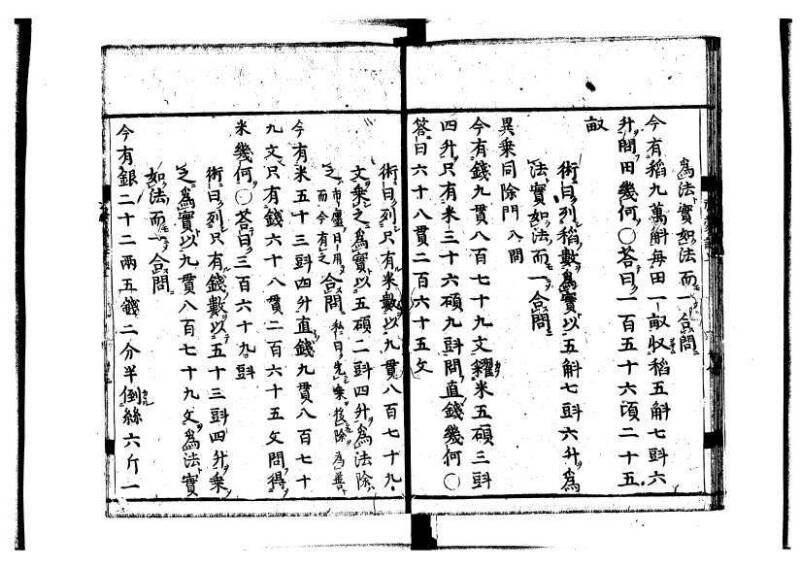 爲法實如法而一合問
今有稻九萬斛毎田一畝收稻五斛七㪷六
升問田幾何〇荅曰一百五十六頃二十五
畝
術曰列稻數爲實以五斛七㪷六升爲
法實如法而一合問
異乘同除門 八問
今有錢九貫八百七十九文糴米五碩三㪷
四升只有米三十六碩九㪷問直錢幾何〇
荅曰六十八貫二百六十五文
術曰列只有米數以九貫八百七十九
文乘之爲實以五碩二㪷四升爲法除
之 市廛日用而今有之 合問 私曰先乘後除爲善
今有米五十三㪷四升直錢九貫八百七十
九文只有錢六十八貫二百六十五文問得
米幾何〇荅曰三百六十九㪷
術曰列只有錢數以五十三㪷四升乘
之爲實以九貫八百七十九文爲法實
如法而一合問
今有銀二十二兩五錢二分半倒絲六斤一